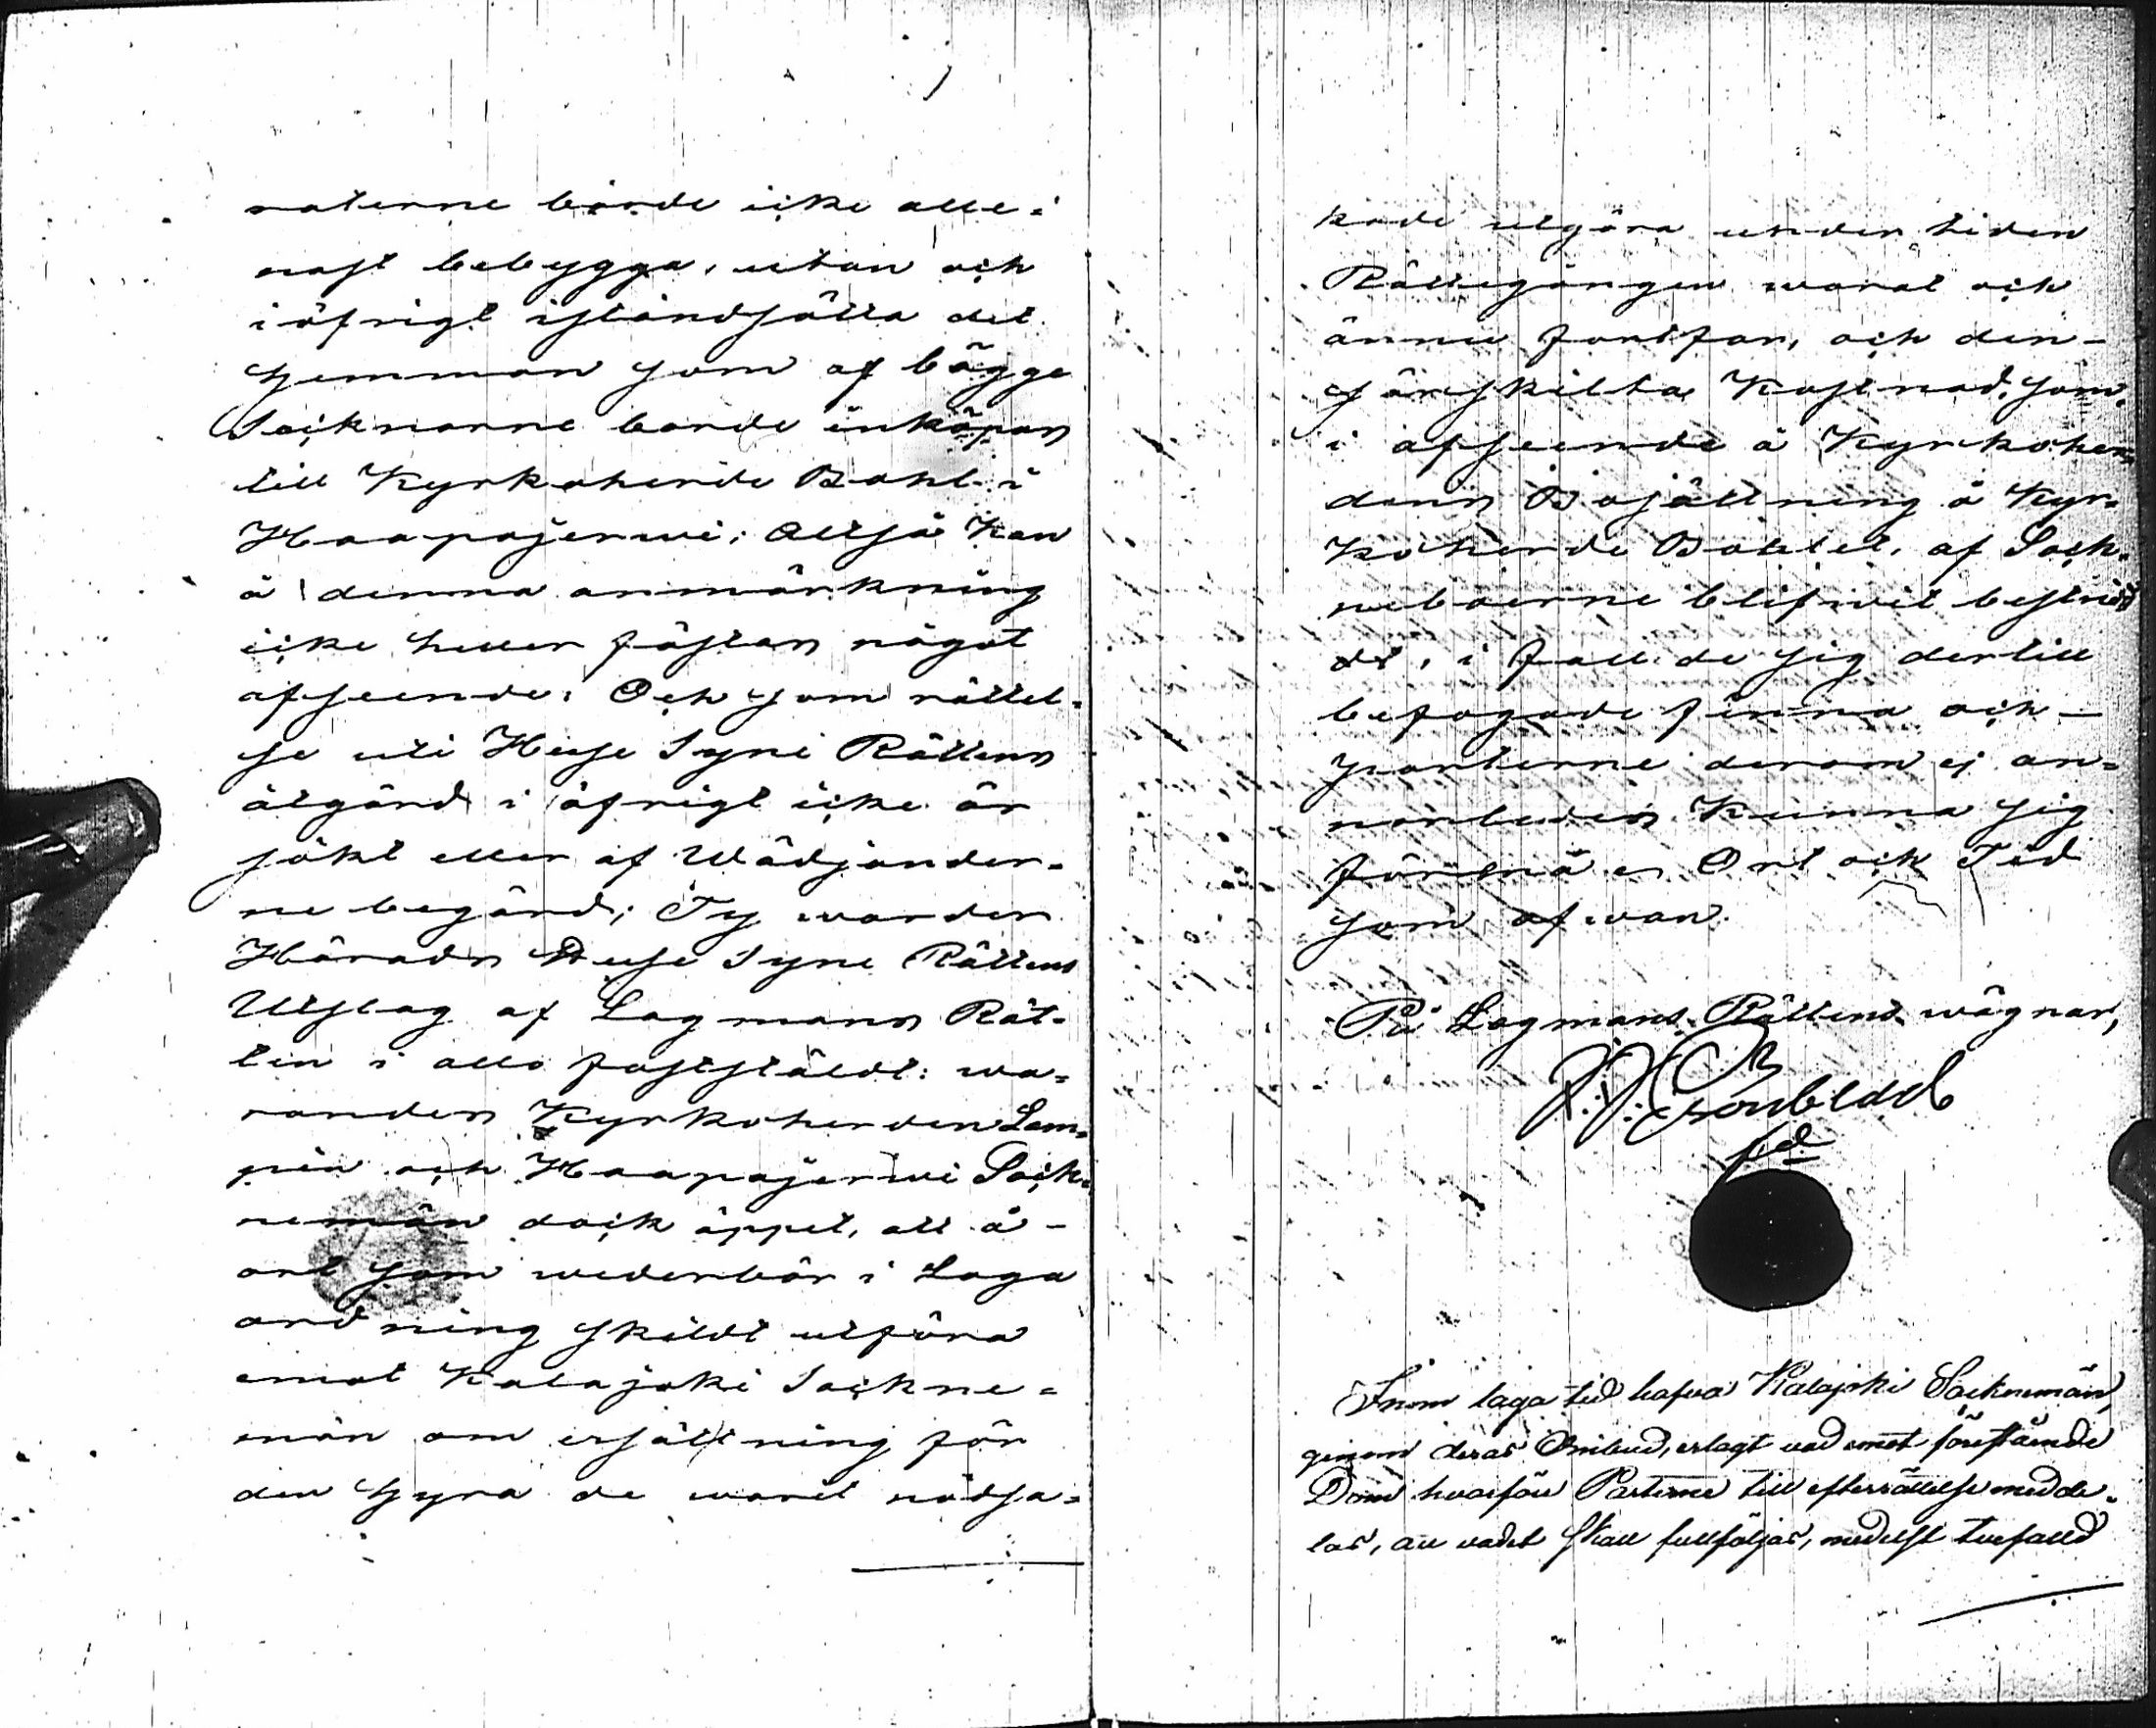 naterne börde icke alle=
nast bebygga, utan och
i öfrigt iståndsätta det
Hemman som af bägge
Socknarne borde inköpas
till Kyrkoherde Bohl i
Haapajerwi; Altså kan
å denna anmärkning
icke heller fästas något
afseende: Och som rättel=
se uti Huse Syne Rättens
åtgärd i öfrigt icke är
sökt eller af Wädjander=
ne begärd; Ty warder
Härads Huse Syne Rättens
Utslag af Lagmans Rät=
ten i allo fastställdt: wa=
randes Kyrkoherden Lam=
pen och Haapajerwi Sock=
nemän dock öppet, att å-
ort som wederbör i Laga
ordning skildt utföra
emot Kalajoki Sockne=
män om ersättning för
den Hyra de warit nödsa=
kade utgöra under tiden
Rättegången warat och
ännu fortfar, och den-
särskilta Kostnad, som
i afseende å Kyrkoher=
dens Bosättning å Kyr=
koherde Bohlet, af Sock=
neboerne blifwit bestrid
dt, i fall de sig dertill
befogade finna och-
parterne derom ej an=
norledes kunna sig
förena Ort och Tid
som ofwan.
På Lagmans Rättens wägnar,
Inom laga tid hafva Kalajoki Socknemän,
genom deras Ombud, erlagt vad emot förestående
Dom hvarföre Parterne till efterrättelse medde=
las, att vadet skall fullföljas, medelst tuefalld